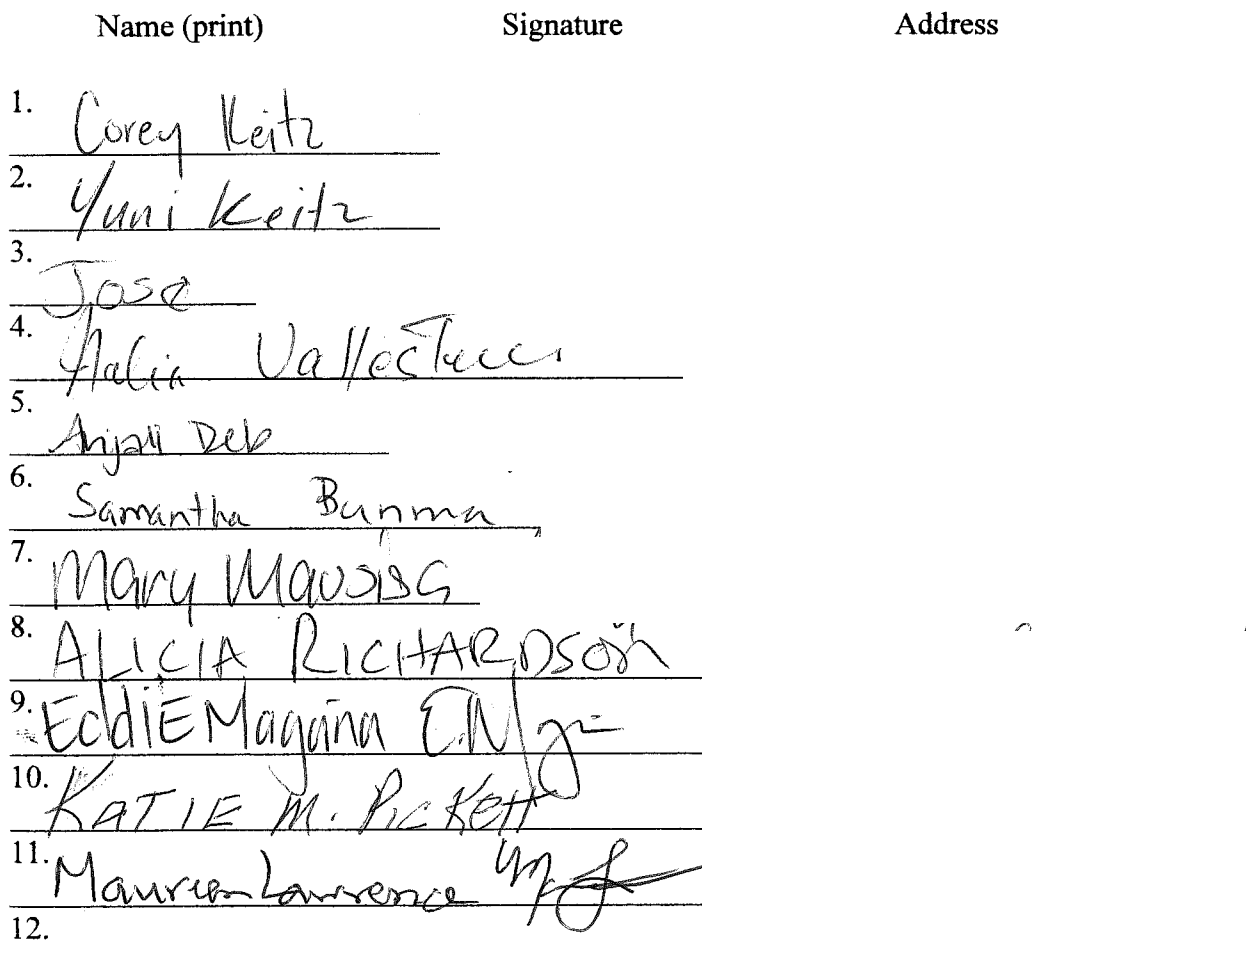 Name (print) Signature Address
1. Corey Keitz
2. Yuni Keitz
3. Jose
4.
5. Anjali Deb
6. Samantha Bunma
7. Mary
8. ALICIA RICHARDSON
9. EddiE Magana
10. KATIE M. PicKett
11. Maureen Lawrence
12.